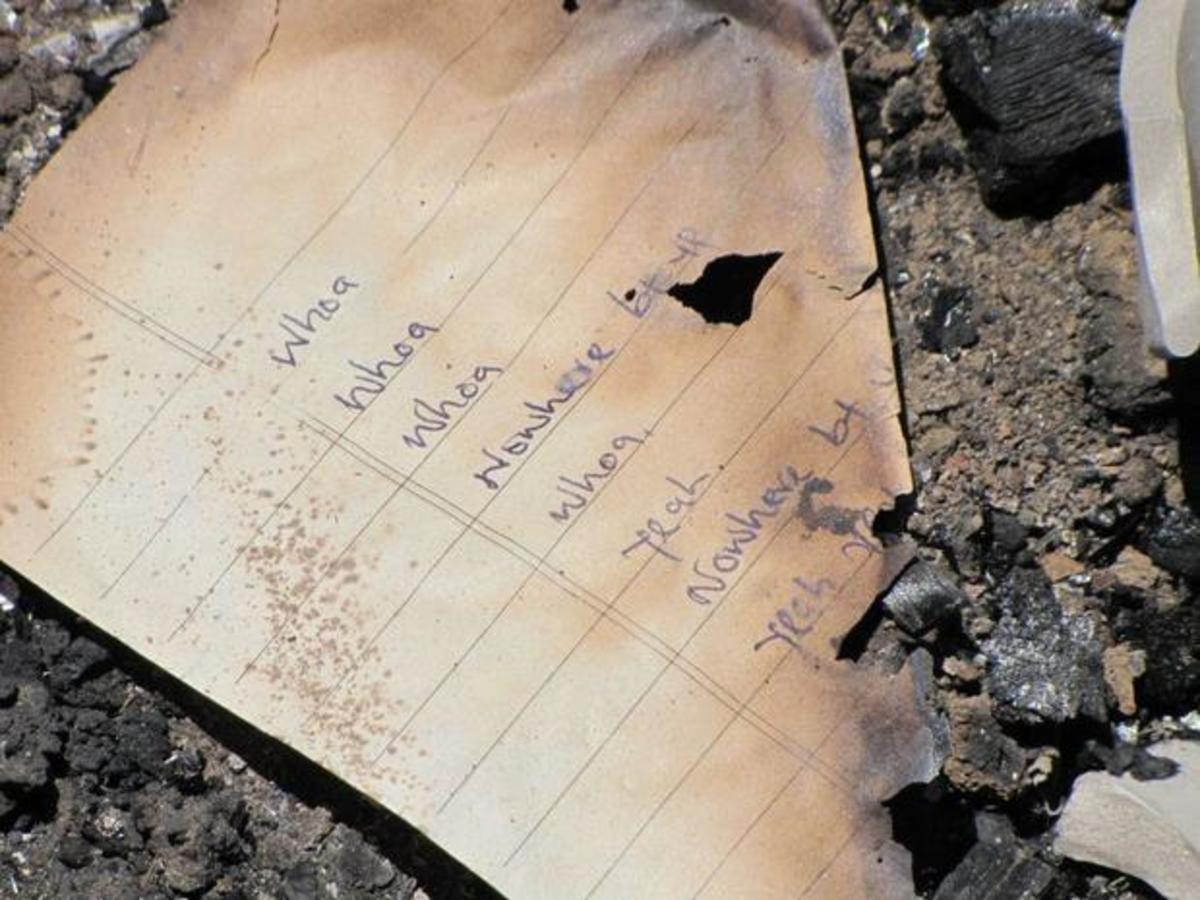 Whoa
Whoa
Whoa
Nowhere but up
Whoa
Yeah
Nowhere but
Yeah